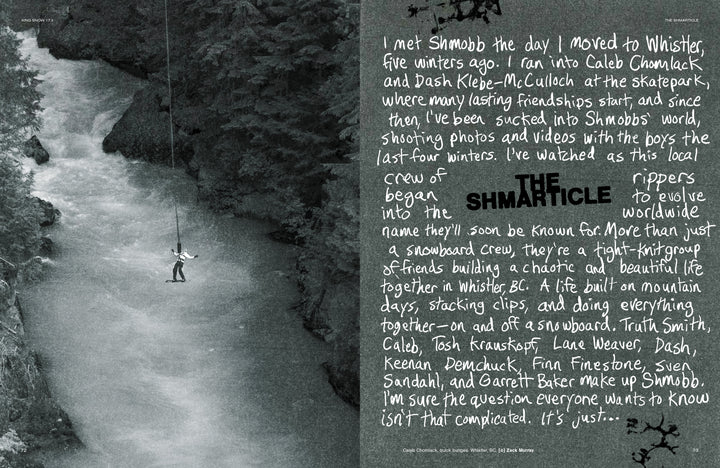 KING SNOW 17.3
THE SHMARTICLE
I met Shmobb the day I moved to Whistler,
five winters ago. I ran into Caleb Chomlack
and Dash Klebe-McCulloch at the skatepark,
where many lasting friendships start, and since
then, I've been sucked into Shmobbs' world,
shooting photos and videos with the boys the
last four winters. I've watched as this local
crew of rippers
began to evolve
into the worldwide
THE
SHMARTICLE
name they'll soon be known for. More than just
a snowboard crew, they're a tight-knit group
of friends building a chaotic and beautiful life
together in Whistler, BC. A life built on mountain
days, stacking clips, and doing everything
together—on and off a snowboard. Truth Smith,
Caleb, Tosh Krauskopf, Lane Weaver, Dash,
Keenan Demchuck, Finn Finestone, Sven
Sandahl, and Garrett Baker make up Shmobb.
I'm sure the question everyone wants to know
isn't that complicated. It's just...
72
Caleb Chomlack, quick bungee. Whistler, BC. [o] Zack Murray
73